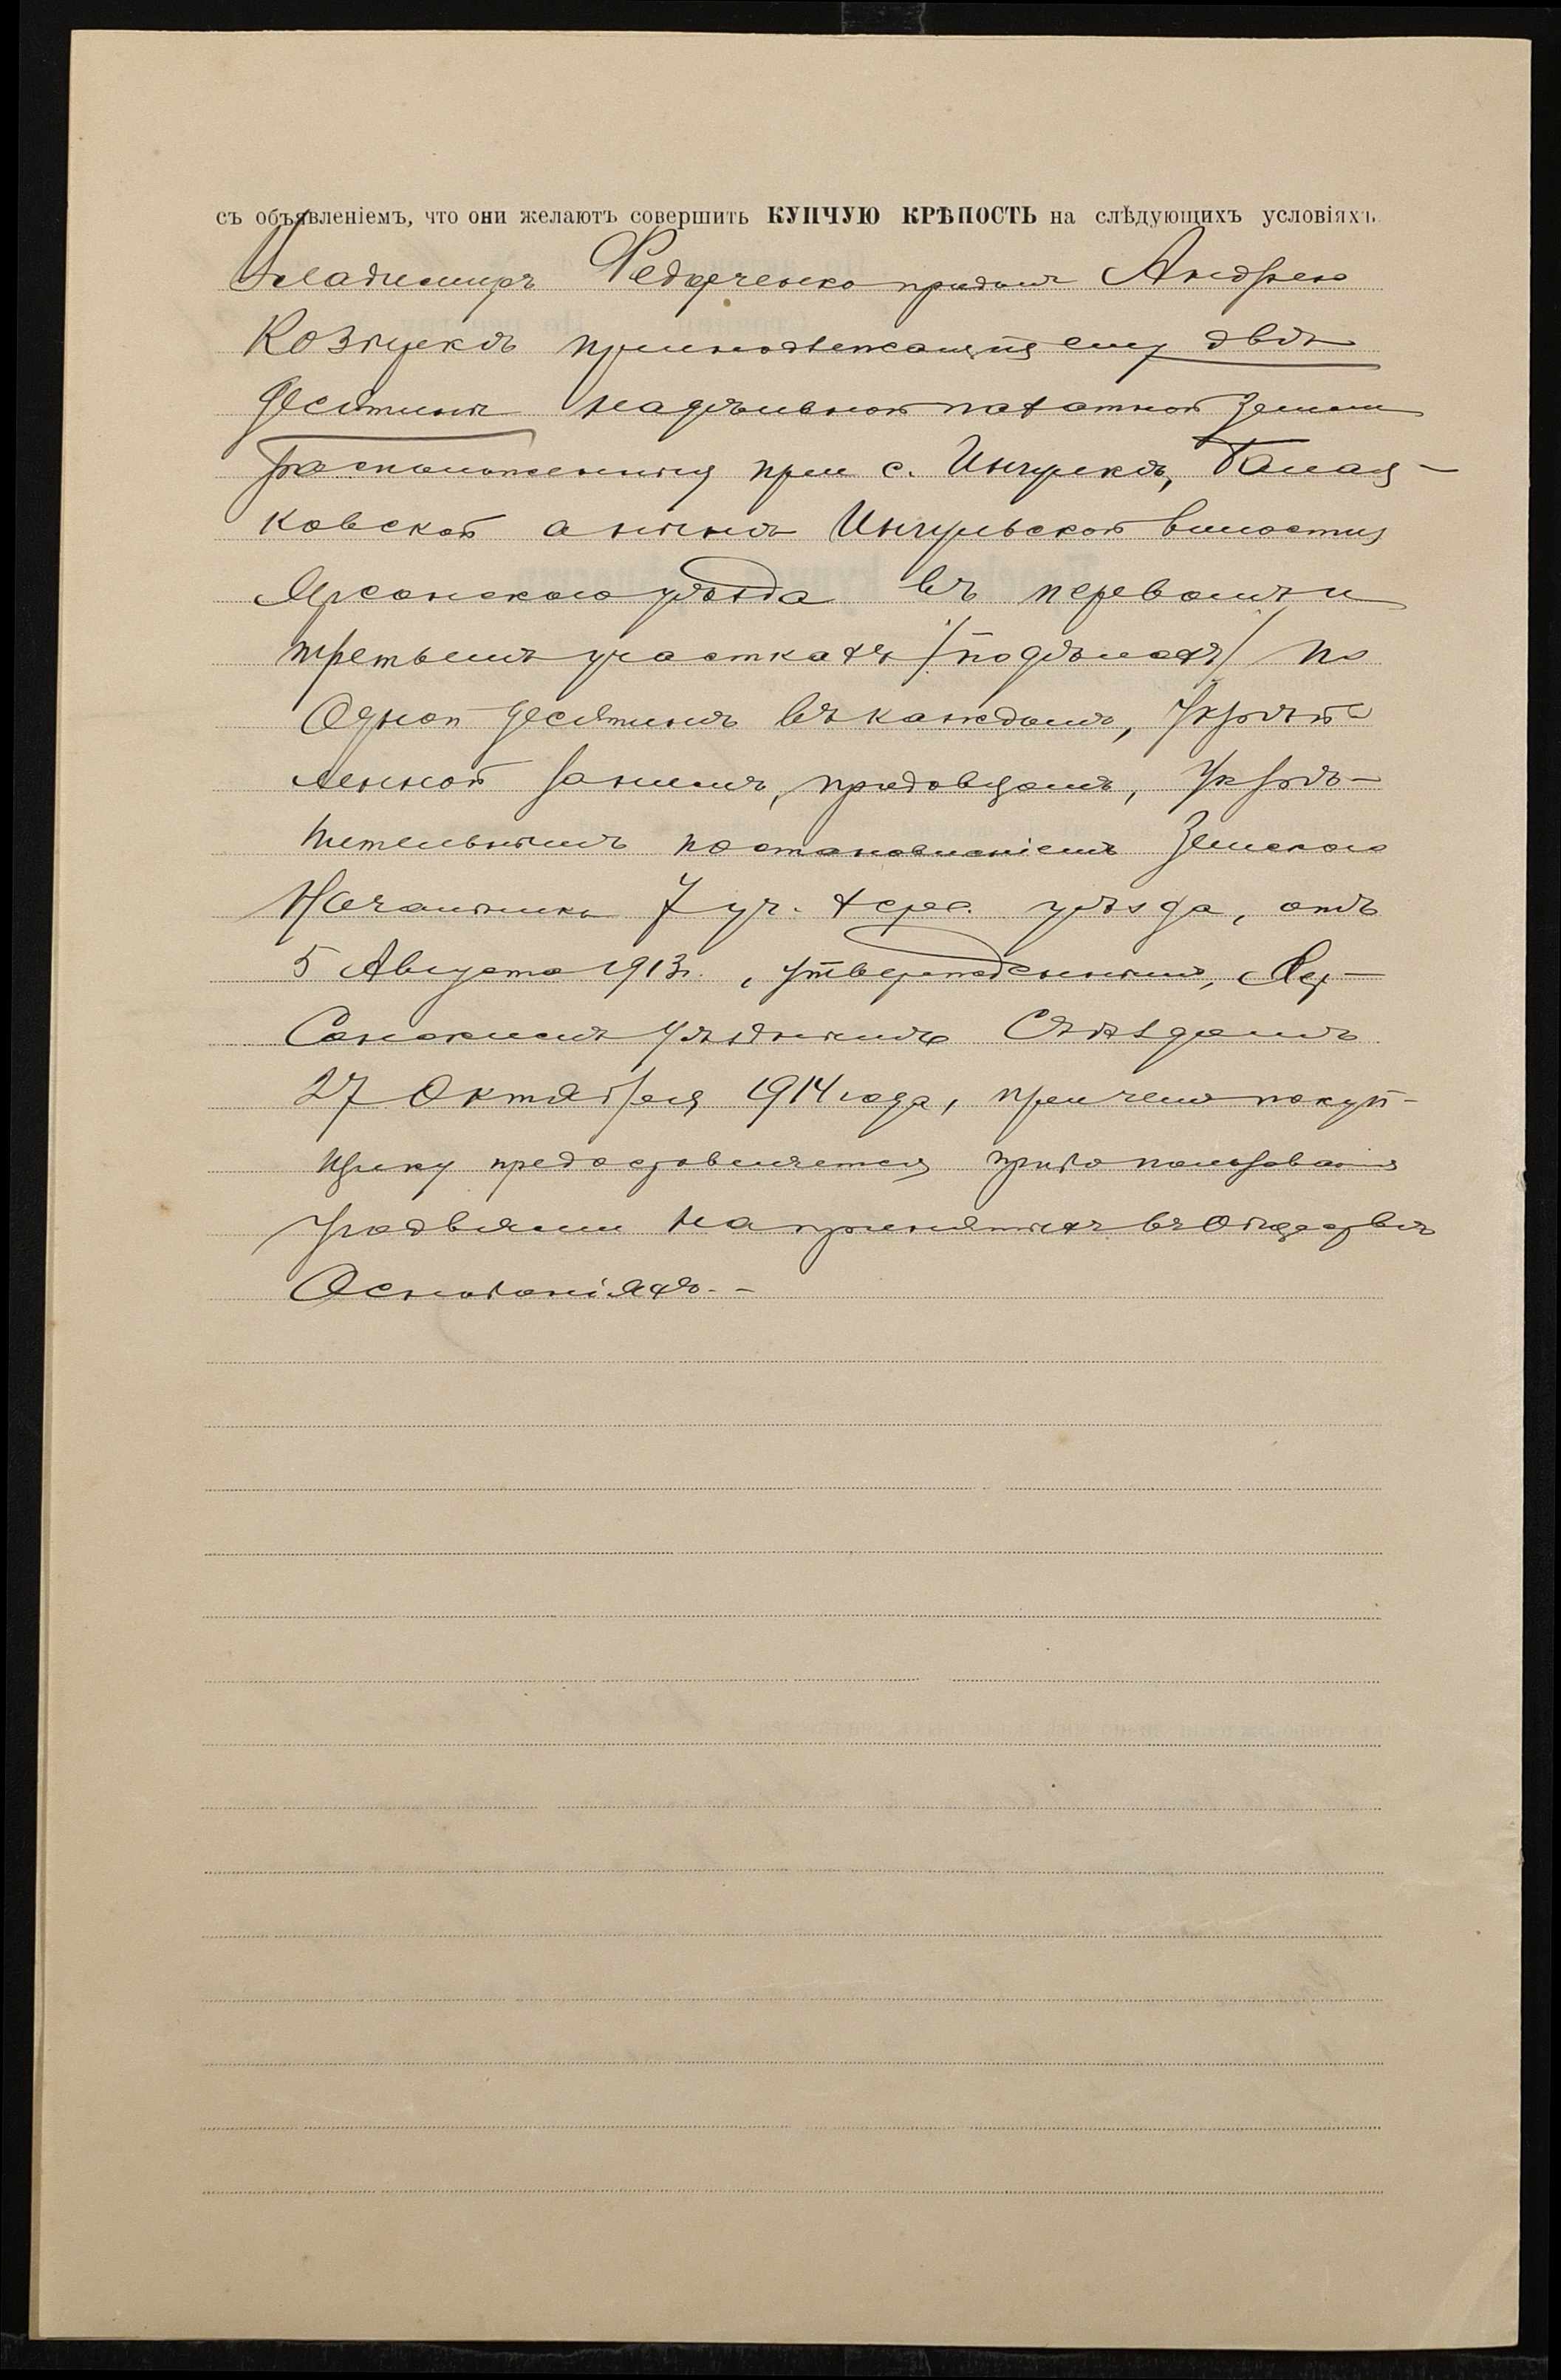 съ объявленіемъ, что они желаютъ совершить КУПЧУЮ КРѢПОСТЬ на слѣдующихъ условіяхъ.
Владимиръ Федорченко продалъ Андрею
принадлежащія ему двѣ
десятины надѣльной пахатной земли
расположенныя при с. Ингулкѣ, Балац-
ковской Ингульской волости
Херсонскаго уѣзда въ первомъ и
третьемъ участкахъ /подѣлахъ/ по
одной десятинѣ въ каждомъ, укрѣп-
ленной за нимъ, продавцомъ, укрѣ-
пительнымъ постановленіемъ Земскаго
Начальника 7 уч. Херс. уѣзда, отъ
5 Августа 1913 г., утвержденнымъ, Хер-
сонскимъ Уѣзднымъ Съѣздомъ
27 Октября 1914 года, при чемъ покуп-
щику предоставляется право пользованія
угодьями на принятыхъ въ обществѣ
основаніяхъ. -